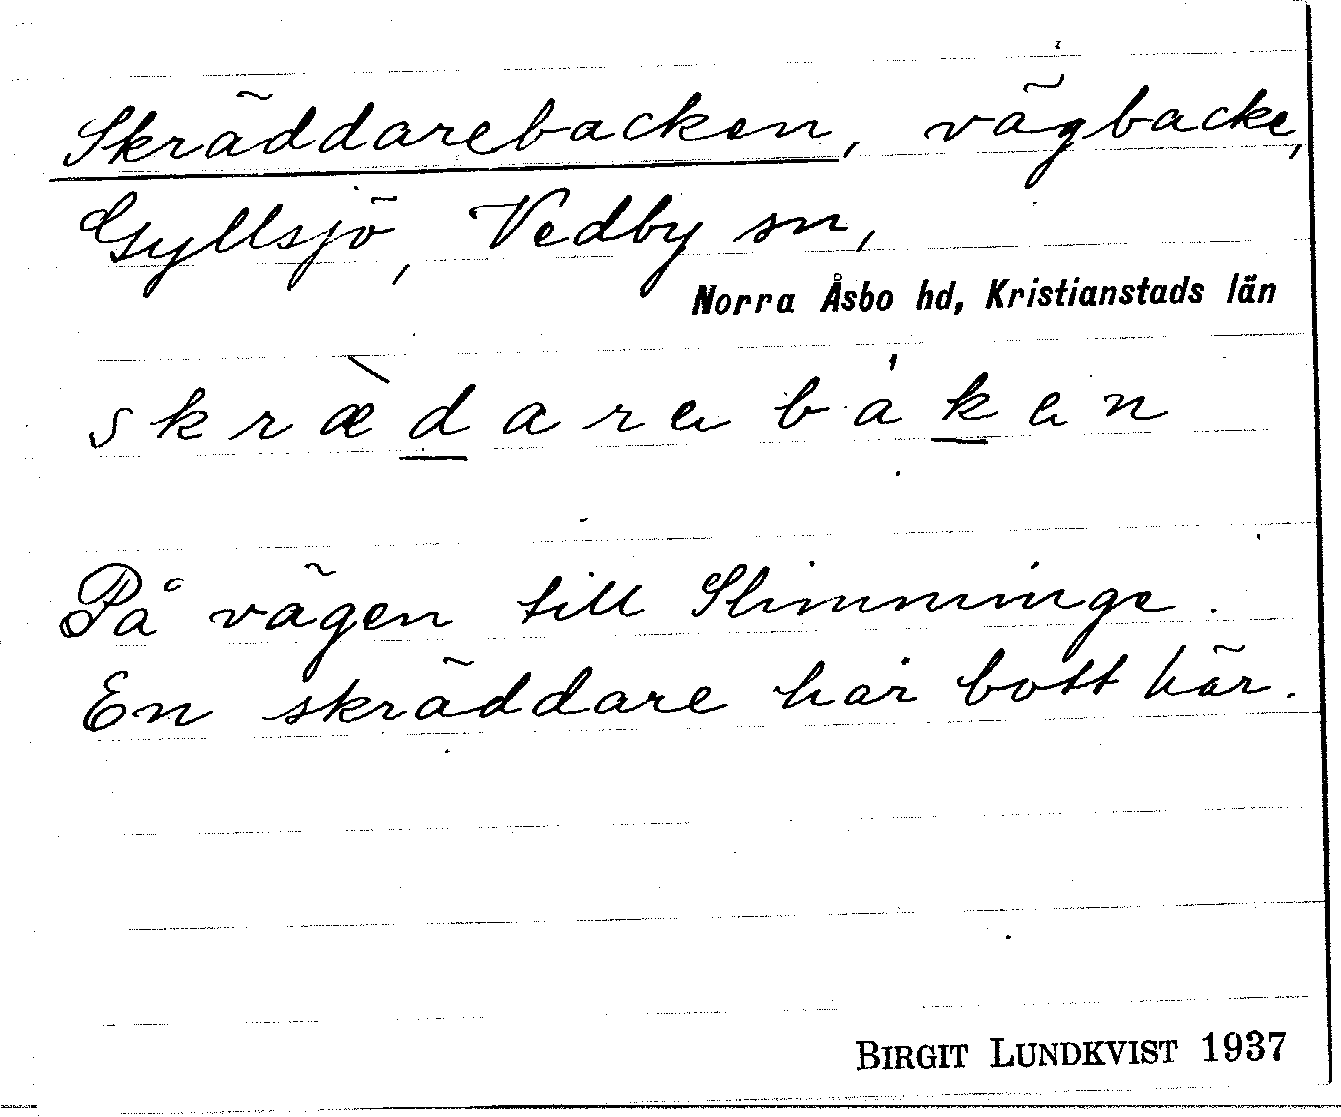 Skräddarebacken, vägbacke,
Gyllsjö, Vedby sn,
Norra Åsbo hd, Kristianstads län
skræ̀darebáken
På vägen till Slimminge.
En skräddare har bott här.
BIRGIT LUNDKVIST 1937